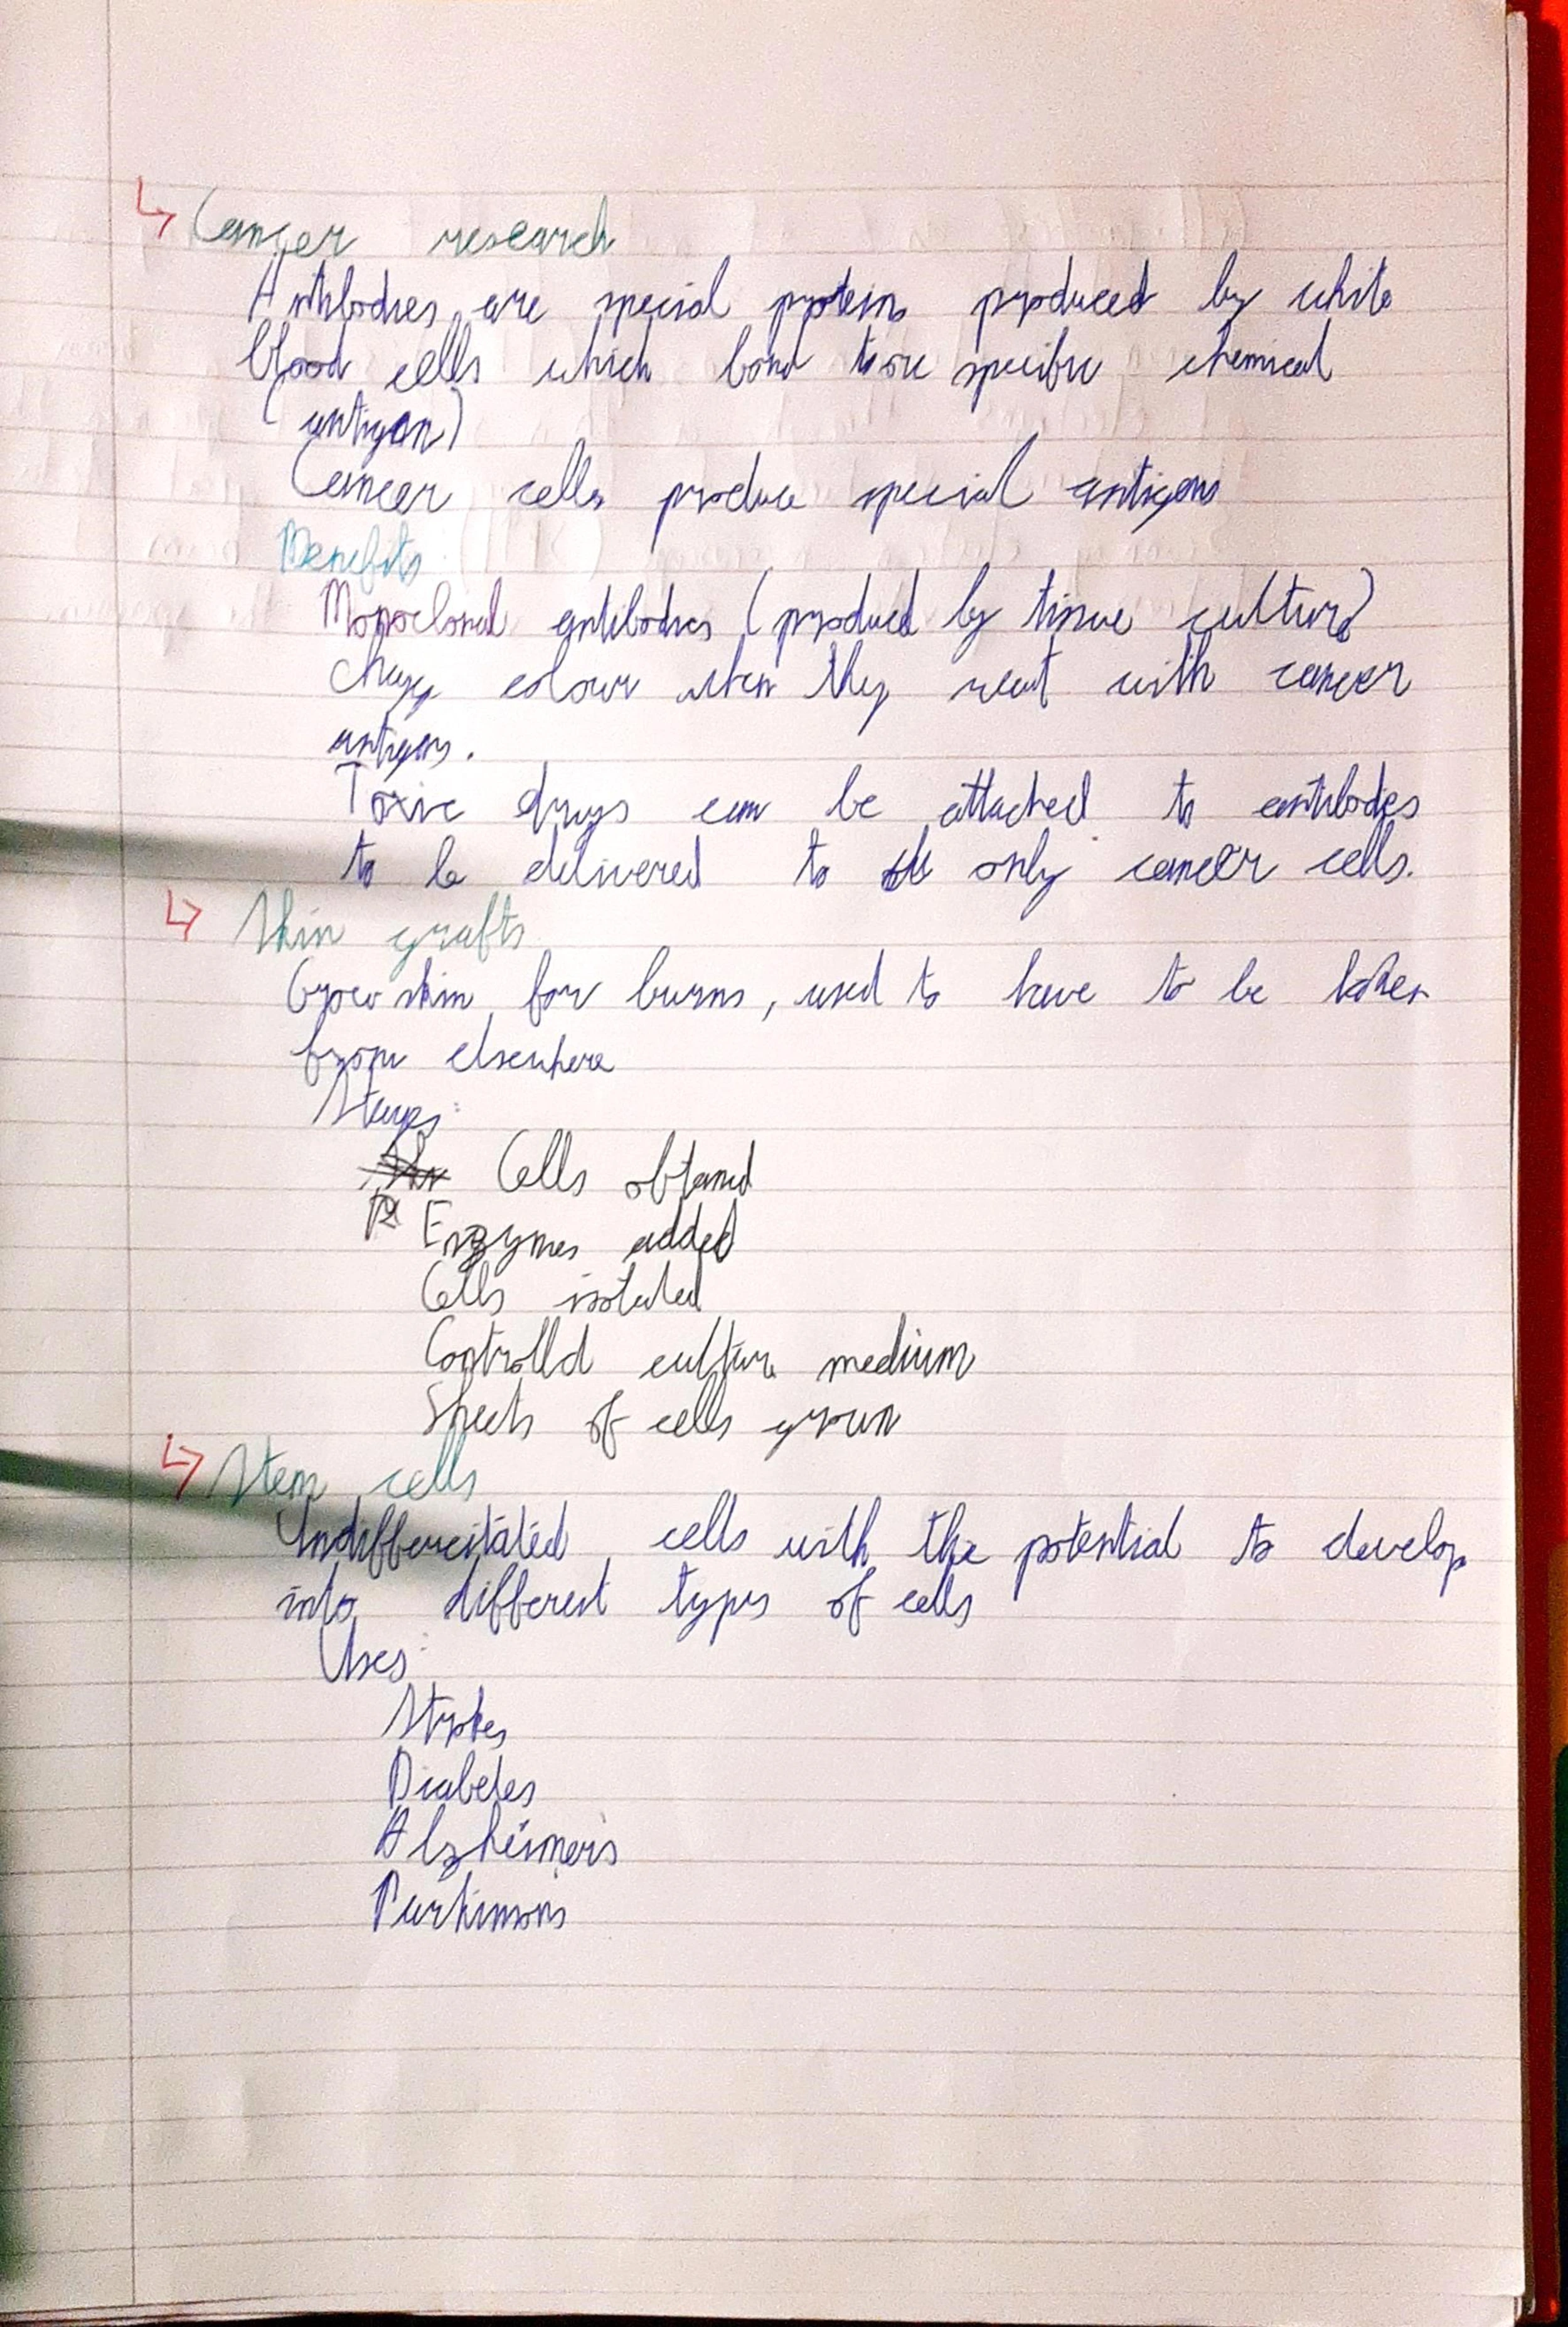 ↳ Cancer research
Antibodies are special proteins produced by white
blood cells which bond to one specific chemical
(antigen)
Cancer cells produce special antigens
Benefits:
Monoclonal antibodies (produced by tissue culture)
change colour when they react with cancer
antigens.
Toxic drugs can be attached to antibodies
to be delivered to only cancer cells.
↳ Skin grafts
Grow skin for burns, used to have to be taken
from elsewhere
Stages:
Cells obtained
Enzymes added
Cells isolated
Controlled culture medium
Sheets of cells grown
↳ Stem cells
Undifferentiated cells with the potential to develop
into different types of cells
Uses:
Strokes
Diabetes
Alzheimers
Parkinsons